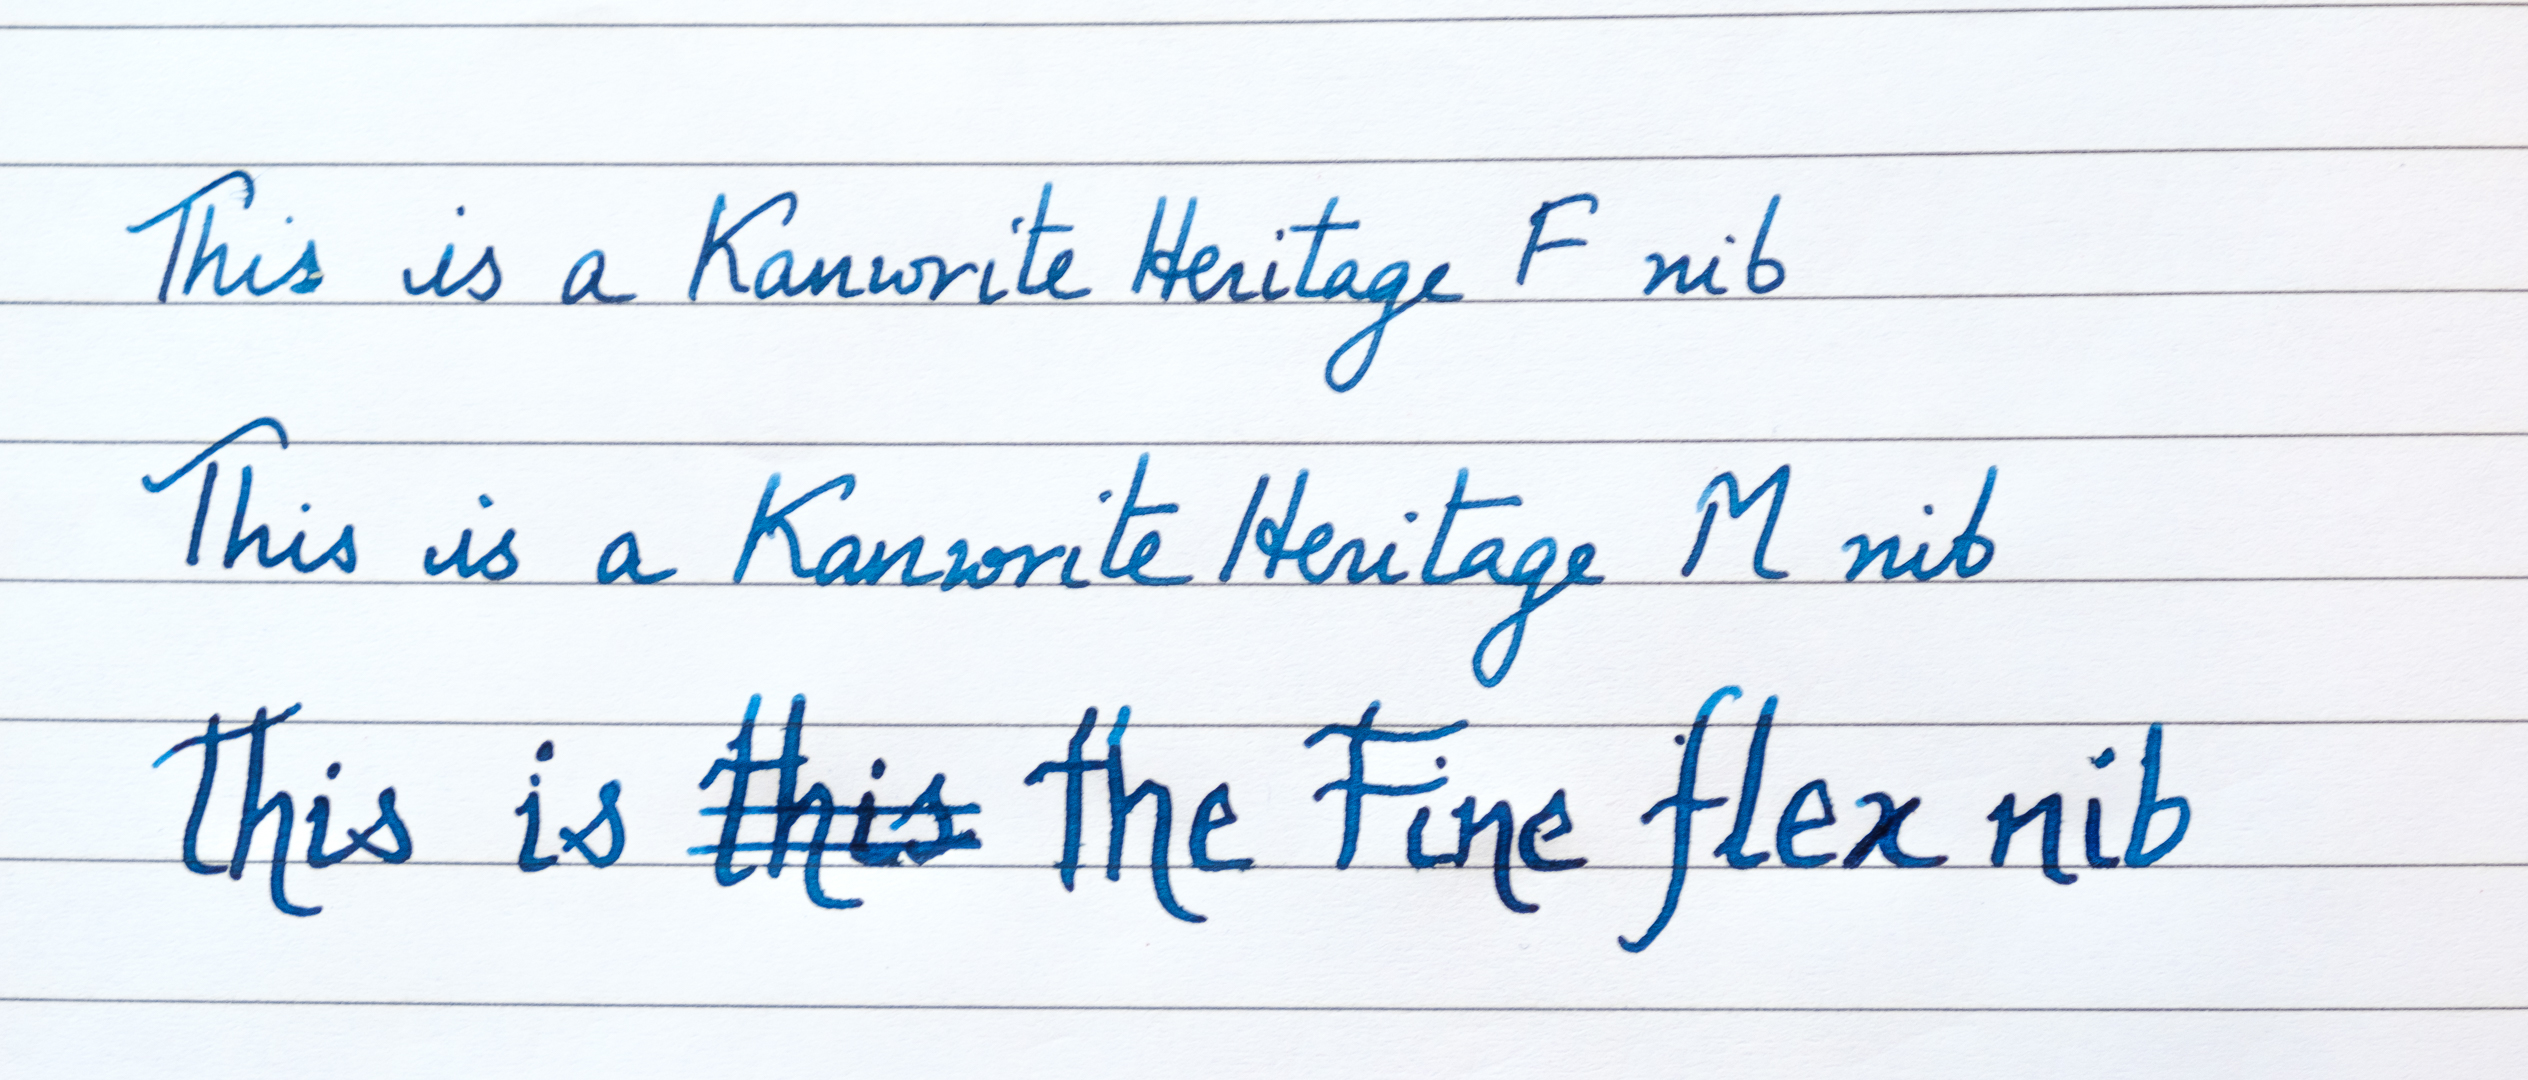 This is a Kanwrite Heritage F nib
This is a Kanwrite Heritage M nib
this is this the Fine flex nib